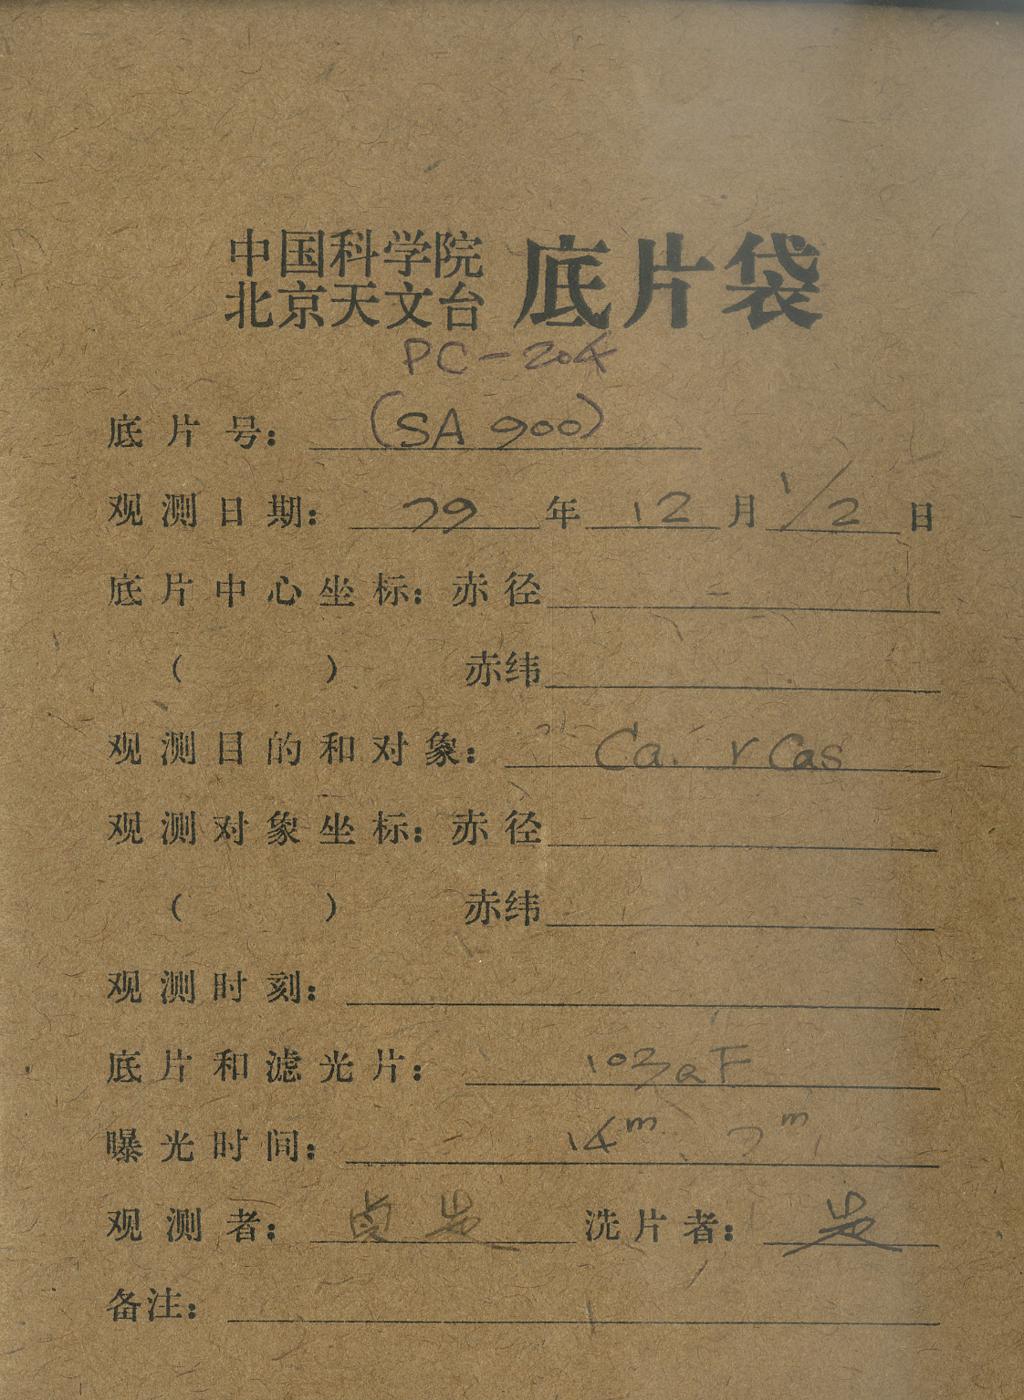 中国科学院
北京天文台 底片袋
PC-204
底片号: (SA 900)
观测日期: 79年12月1/2日
底片中心坐标: 赤径
( ) 赤纬
观测目的和对象: Ca. r Cas
观测对象坐标: 赤径
( ) 赤纬
观测时刻:
底片和滤光片: 103aF
曝光时间: 14m、7m
观测者: 洗片者:
备注: